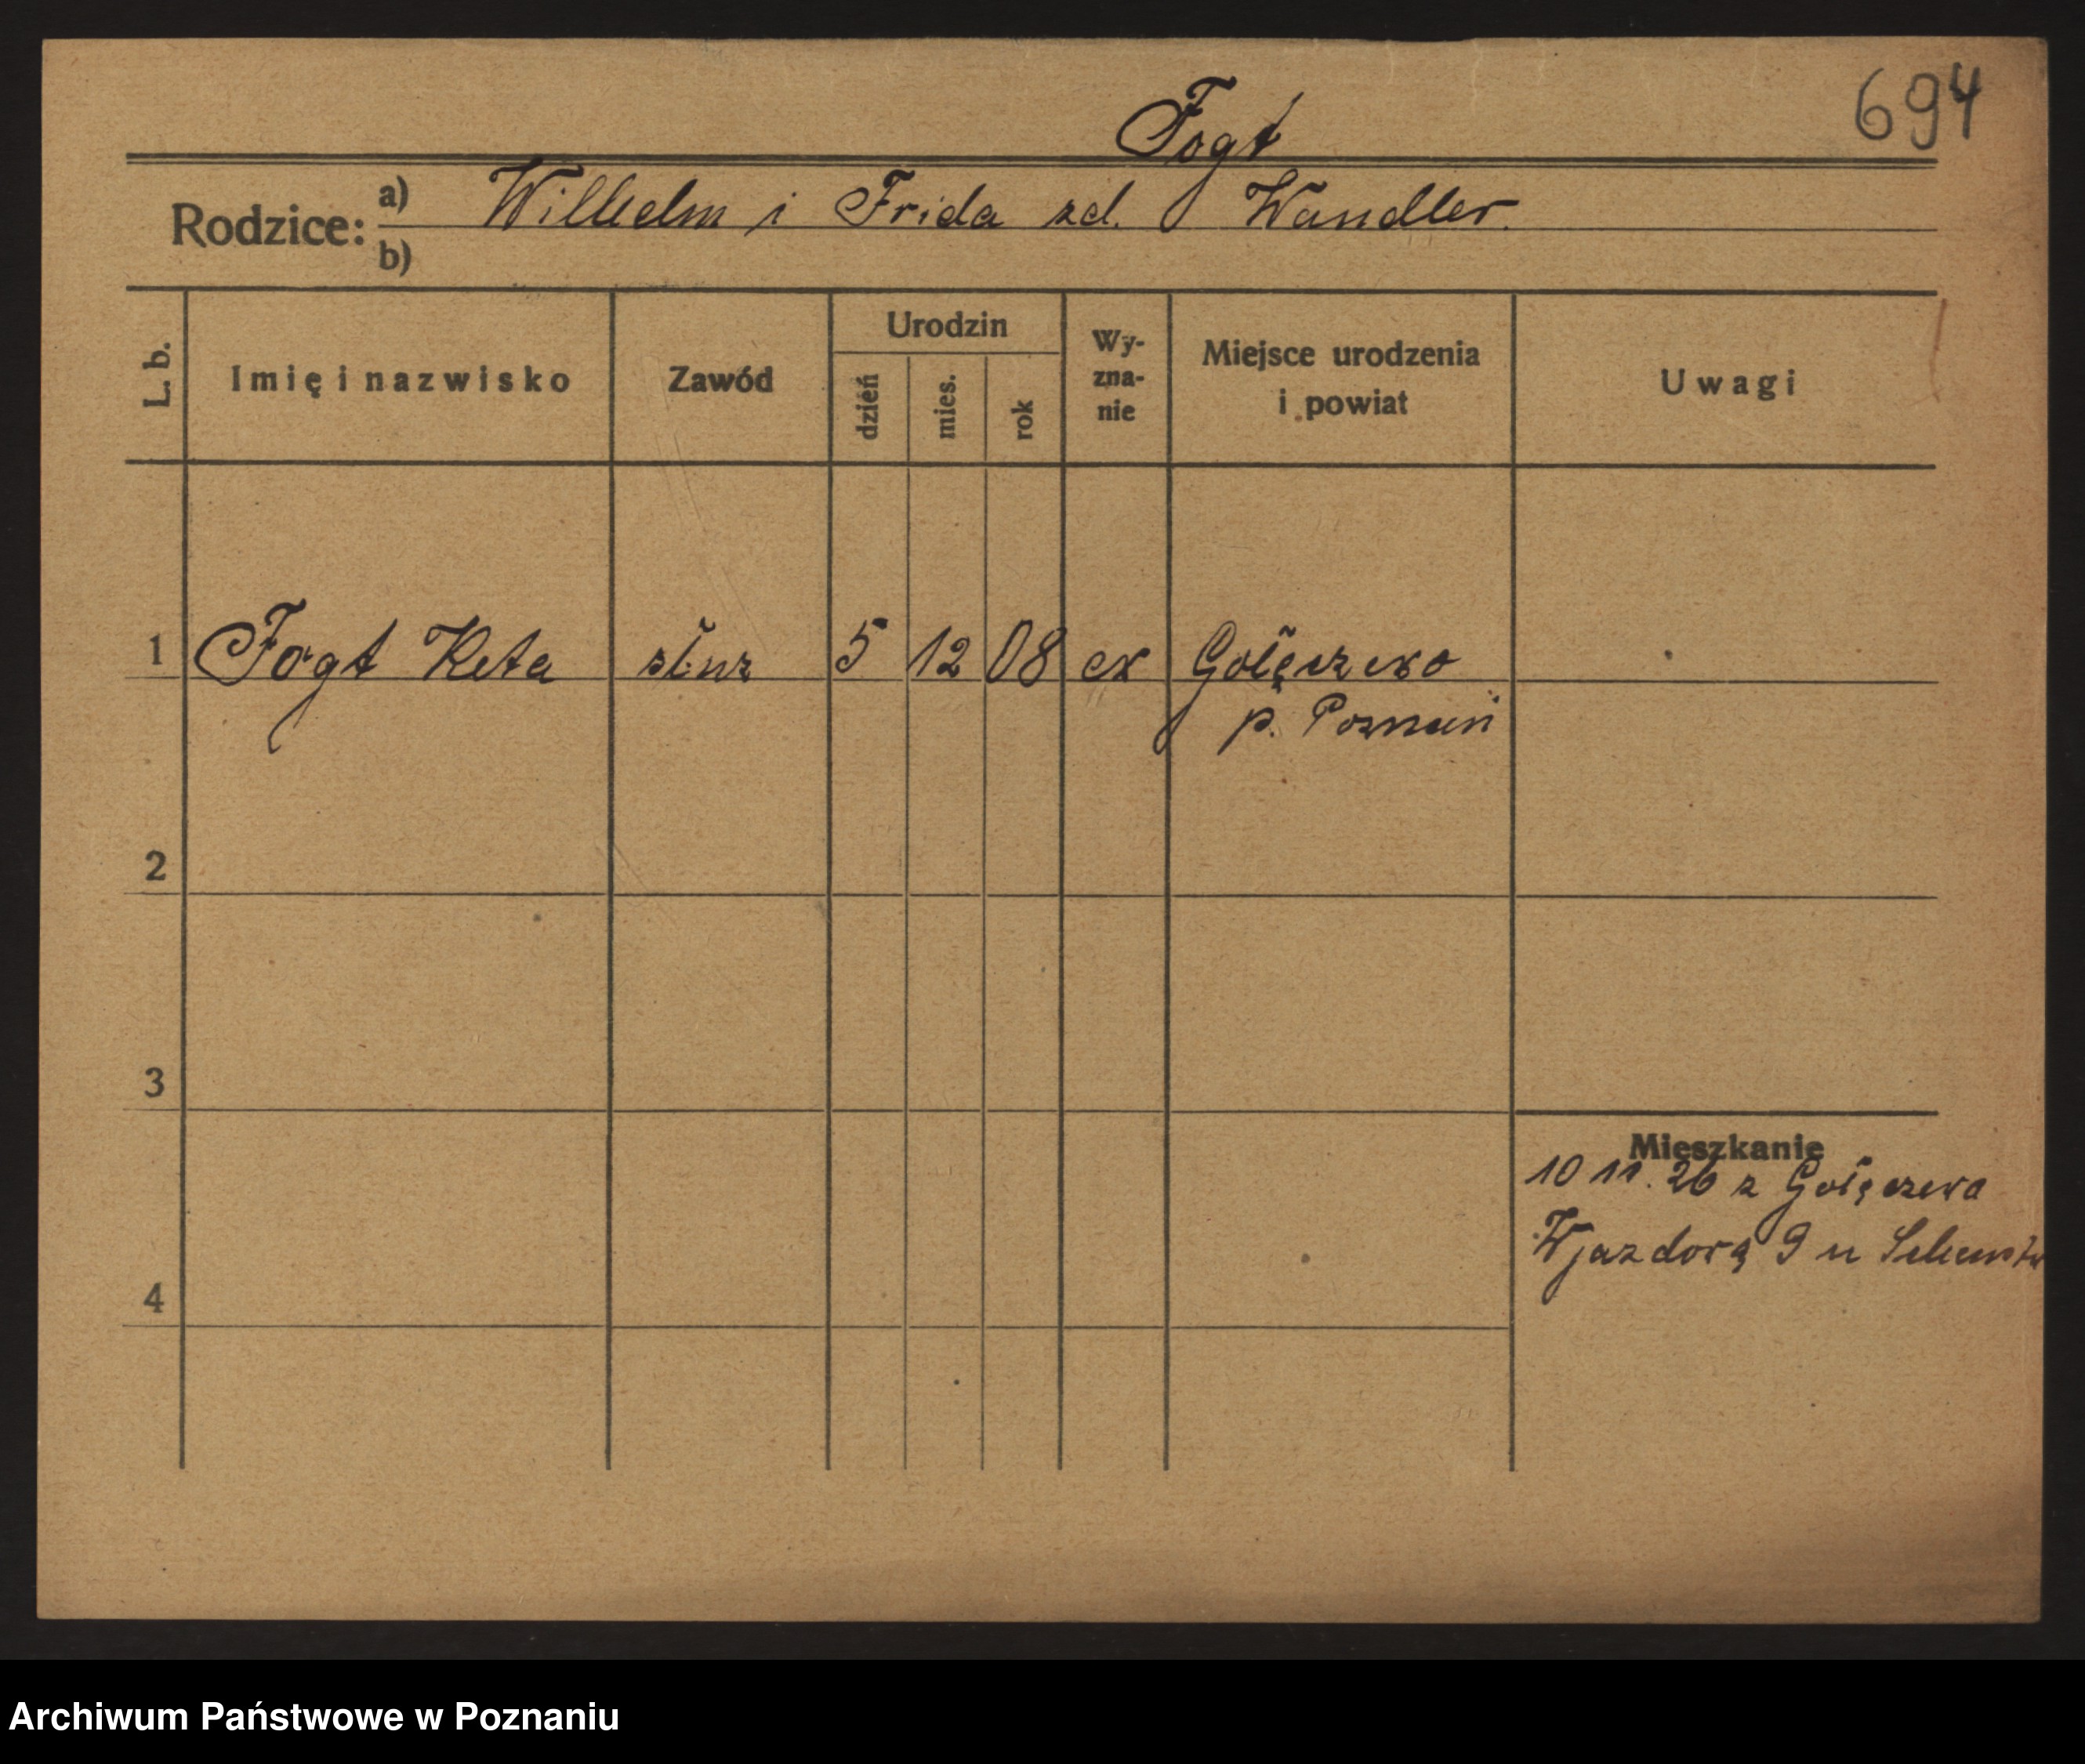 694
Fogt
Rodzice: a) Wilhelm i Frida zd. Wandler.
b)
L. b.
Imię i nazwisko
Zawód
Urodzin
dzień
mies.
rok
Wy-
zna-
nie
Miejsce urodzenia
i powiat
Uwagi
1 Fogt Keta służ 5 12 08 ew Golęczewo
p. Poznań
2
3
Mieszkanie
10 11. 26 z Golęczewa
Wjazdową 9 u
4
Archiwum Państwowe w Poznaniu